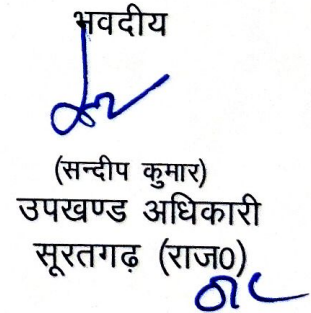 भवदीय
(सन्दीप कुमार)
उपखण्ड अधिकारी
सूरतगढ़ (राज0)